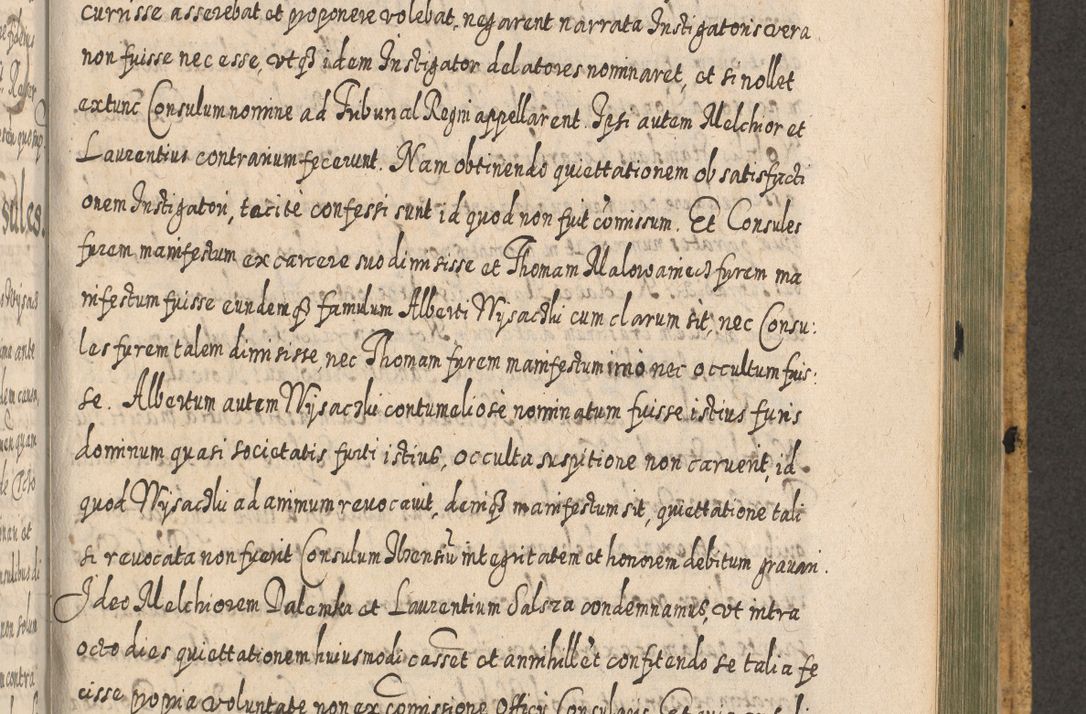 currisse asserebat et proponere volebat, negarent narrata Instigatoris vera
non fuisse nec esse, vtq3 idem Instigator delatores nominaret, et si nollet
extunc Consulum nomine ad Tribunal Regni appellarent. Ipsi autem Melchior et
Laurentius contrarium fecerunt. Nam obtinendo quiettationem ob satisfacti
onem Instigatori, tacite confessi sunt id quod non fuit comissum. Et Consules
furem manifestum ex carcere suo dimisisse et Thomam furem ma
nifestum fuisse eundemq3 famulum Alberti Wysaczki cum clarum sit, nec Consu:
les furem talem dimisisse, nec Thomam furem manifestum imo nec occultum fuis:
se. Albertum autem Wysaczki contumeliose nominatum fuisse istius furis
dominum quasi societatis furti istius, occulta suspitione non caruerit, id
quod Wysaczki ad animum revocavit, demq3 manifestum sit, quiettatione tali
si revocata non fuerit Consulum integritatem et honorem debitum gravari.
Ideo Melchiorem Dalemka et Laurentium Salsza condemnamus, vt intra
octo dies quiettationem huiusmodi casset et annihillet confitendo se talia fe
cisse propria voluntate non ex Comissione Officij Consularis